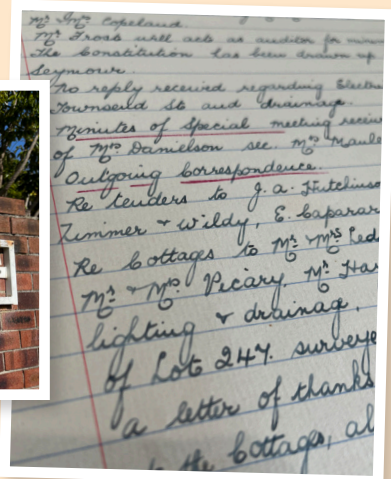 Mr & Mrs Copeland.
Mr Frost will act as auditor for
The Constitution has been drawn up
Seymour.
No reply received regarding Electri
Townsend St and drainage.
Minutes of Special meeting recei
of Mrs Danielson sec. Mrs Maul
Outgoing Correspondence.
Re tenders to J. A. Hutchins
Zimmer & Wildy, E. Caparar
Re Cottages to Mr & Mrs
Mr & Mrs Picary. Mr Ha
lighting & drainage.
of Lot 247. surveye
a letter of thanks
the Cottages, al